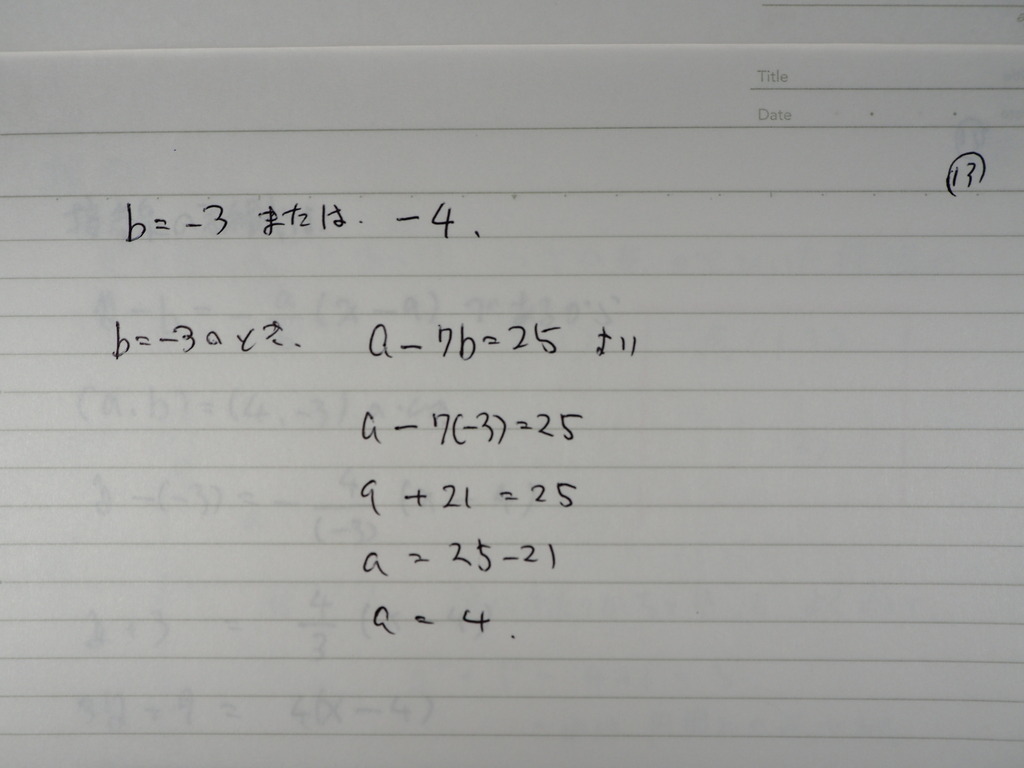 Title
Date
⑬
b=-3 または. -4、
b=-3のとき、 a-7b=25 より
a-7(-3)=25
a+21=25
a=25-21
a=4.